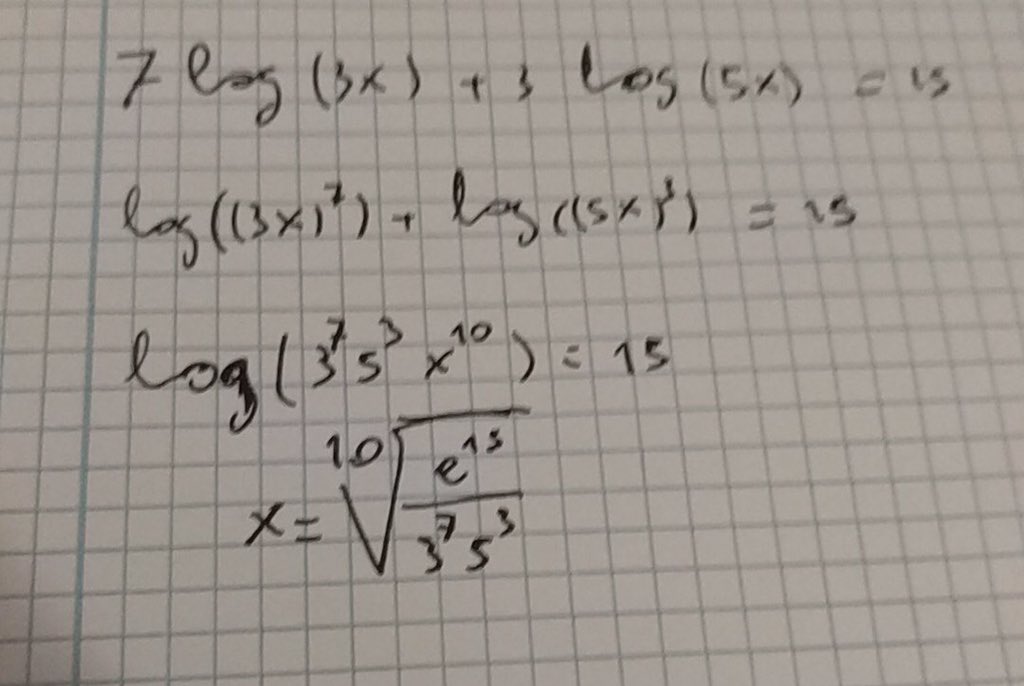 7 log (3x) + 3 log (5x) = 15
log((3x)⁷) + log((5x)³) = 15
log(3⁷5³x¹⁰) = 15
x = ¹⁰√(e¹⁵/(3⁷5³))